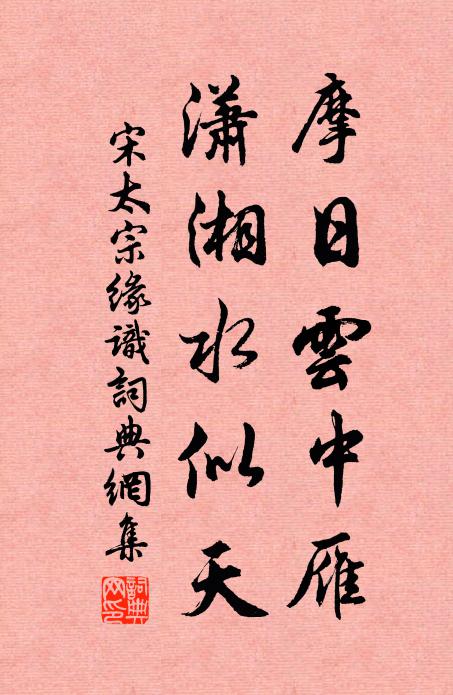 摩日雲中雁
瀟湘水似天
宋太宗緣識詞典網集
詞典網印